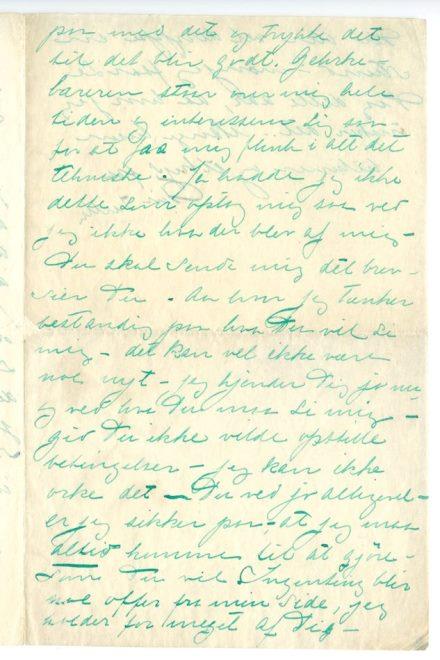 paa med det og trykke det
til det blir godt. Gehrke-
bareren staar over mig hele
tiden og interesserer sig som
for at faa mig flink i alt det
tekniske. Ja hadde jeg ikke
dette som optog mig saa ved
jeg ikke hva der blev af mig –
Du skal sende mig det brev –
sier Du. Aa hvor jeg tænker
bestandig paa hva Du vil si
mig – det kan vel ikke være
noe nyt – jeg kjender Dig jo nu
og ved hva Du maa si mig –
gid Du ikke vilde opstille
betingelser – jeg kan ikke
orke det – Du ved jo allikevel –
er jeg sikker paa – at jeg maa
altid komme til at gjøre –
som Du vil. Ingenting blir
noe offer fra min side, jeg
holder for meget af Dig –